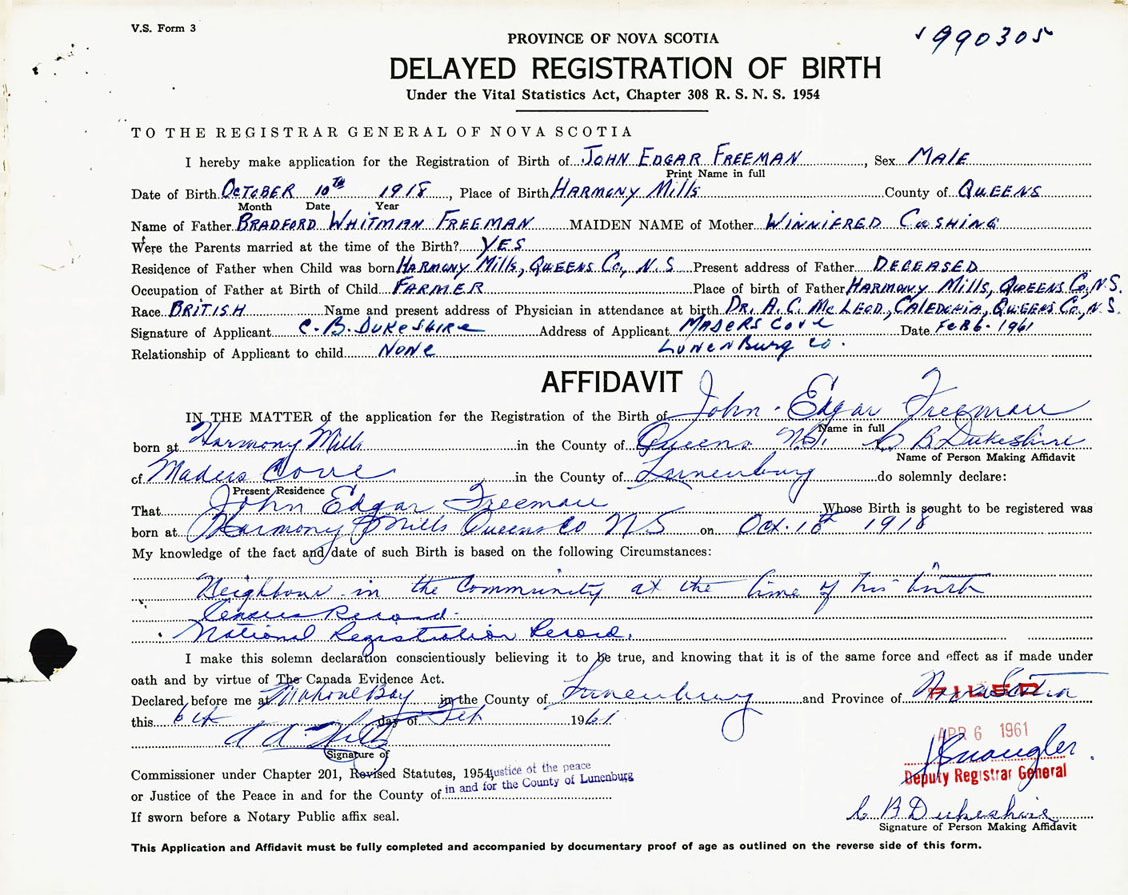 V.S. Form 3
990305
PROVINCE OF NOVA SCOTIA
DELAYED REGISTRATION OF BIRTH
Under the Vital Statistics Act, Chapter 308 R. S. N. S. 1954
TO THE REGISTRAR GENERAL OF NOVA SCOTIA
I hereby make application for the Registration of Birth of JOHN EDGAR FREEMAN, Sex MALE
Print Name in full
Date of Birth OCTOBER 10TH 1918, Place of Birth HARMONY MILLS County of QUEENS
Month Date Year
Name of Father BRADFORD WHITMAN FREEMAN MAIDEN NAME of Mother WINNIFRED CUSHING
Were the Parents married at the time of the Birth? YES
Residence of Father when Child was born HARMONY MILLS, QUEENS CO., N.S Present address of Father DECEASED
Occupation of Father at Birth of Child FARMER Place of birth of Father HARMONY MILLS, QUEENS CO., N.S.
Race BRITISH Name and present address of Physician in attendance at birth DR. A. C. MCLEOD, CALEDONIA, QUEENS CO., N.S.
Signature of Applicant C. B. DUKESHIRE Address of Applicant MADERS COVE Date FEB 6 - 1961
Relationship of Applicant to child NONE LUNENBURG CO.
AFFIDAVIT
IN THE MATTER of the application for the Registration of the Birth of John Edgar Freeman
Name in full
born at Harmony Mills in the County of Queens N.S. C B Dukeshire
Name of Person Making Affidavit
of Maders Cove in the County of Lunenburg do solemnly declare:
Present Residence
That John Edgar Freeman Whose Birth is sought to be registered was
born at Harmony Mills Queens Co N S on Oct. 10th 1918
My knowledge of the fact and date of such Birth is based on the following Circumstances:
Neighbour in the Community at the time of his birth
Census Record.
National Registration Record.
I make this solemn declaration conscientiously believing it to be true, and knowing that it is of the same force and effect as if made under
oath and by virtue of The Canada Evidence Act.
Declared before me at Mahone Bay in the County of Lunenburg and Province of Nova Scotia
FILED
this 6th day of Feb 1961
APR 6 1961
Signature of
Deputy Registrar General
Commissioner under Chapter 201, Revised Statutes, 1954, Justice of the peace
or Justice of the Peace in and for the County of in and for the County of Lunenburg
C B Dukeshire
If sworn before a Notary Public affix seal.
Signature of Person Making Affidavit
This Application and Affidavit must be fully completed and accompanied by documentary proof of age as outlined on the reverse side of this form.